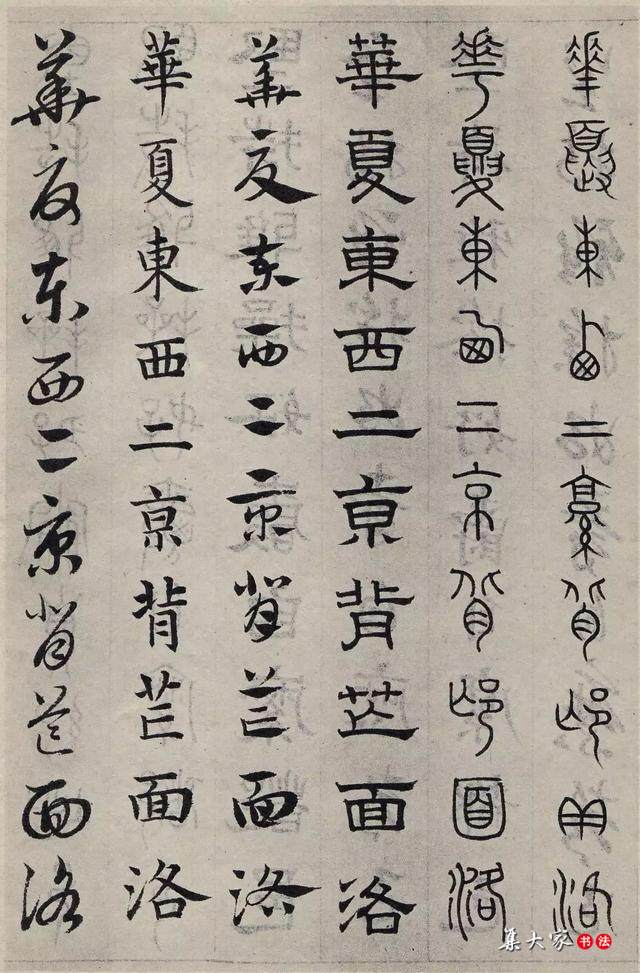 華夏東西二京背邙面洛
華夏東西二京背邙面洛
華夏東西二京背芒面洛
華夏东西二京背芒面洛
華夏東西二京背芒面洛
華夏东西二京背芒面洛
集大家 书法